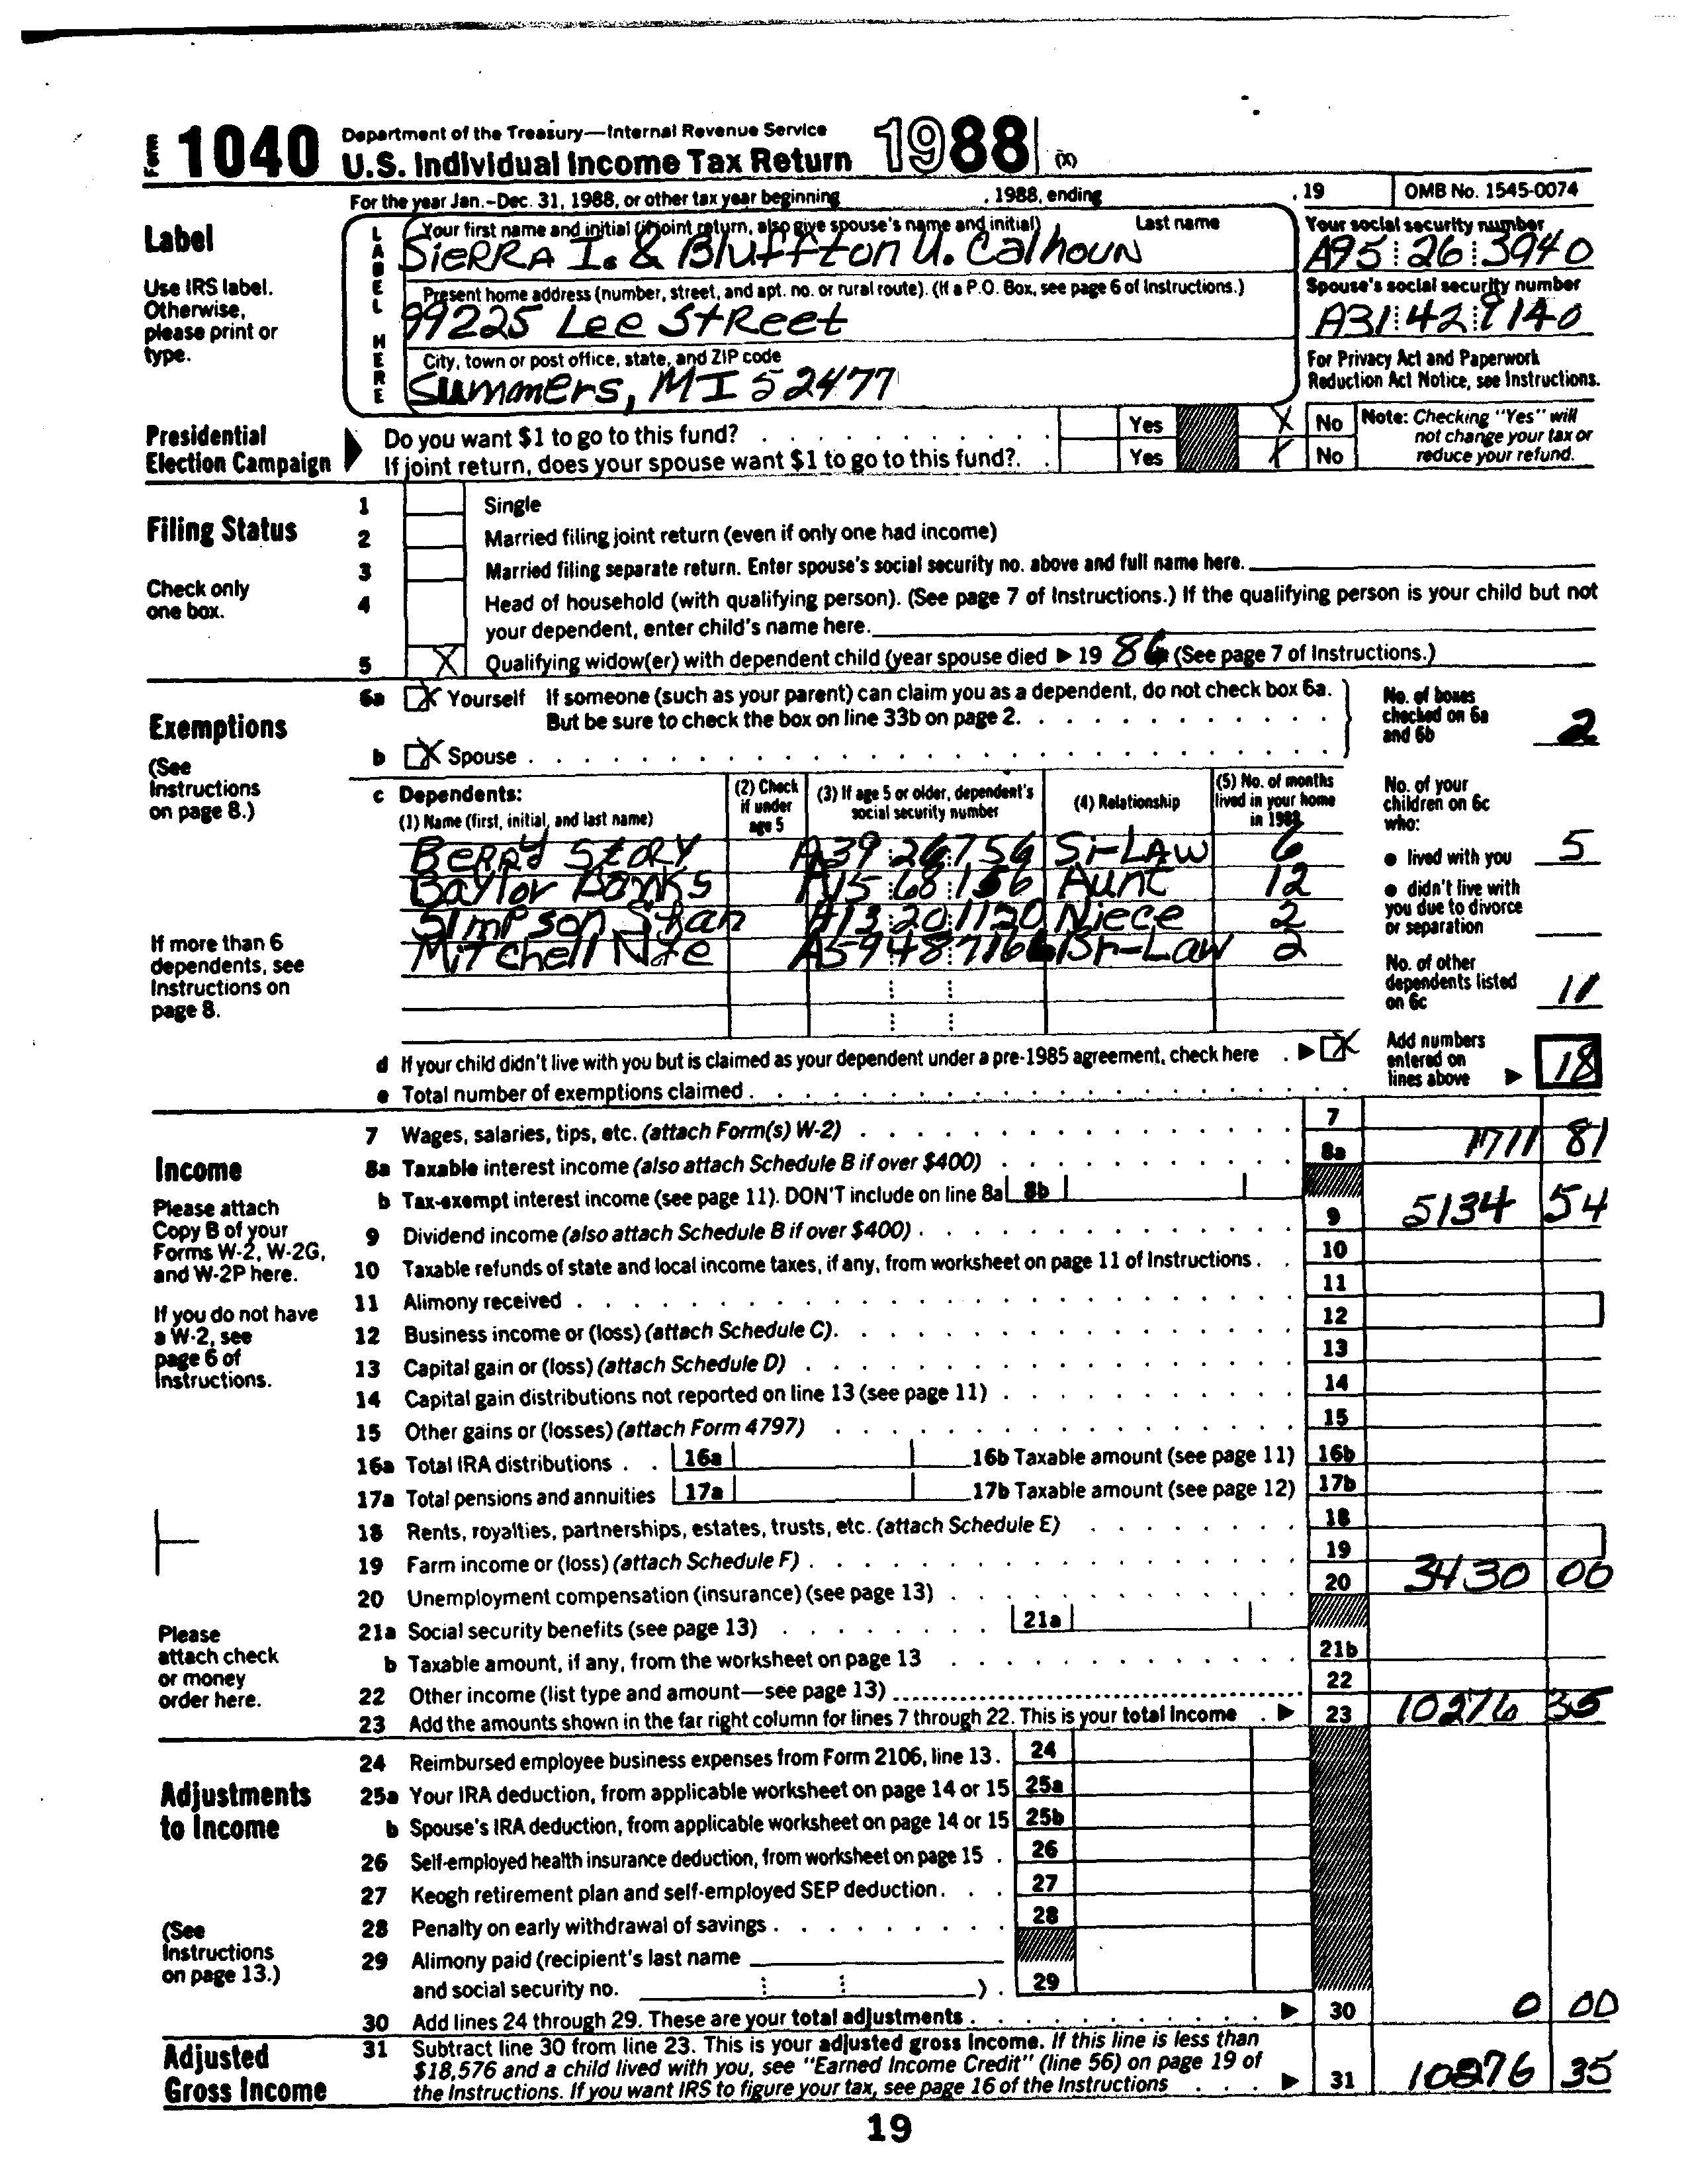 Form 1040 Department of the Treasury—Internal Revenue Service
U.S. Individual Income Tax Return 1988 (X)
For the year Jan.–Dec. 31, 1988, or other tax year beginning , 1988, ending , 19 OMB No. 1545-0074
Label
Use IRS label. Otherwise, please print or type.
LABEL HERE
Your first name and initial (if joint return, also give spouse's name and initial) Last name
SieRRA I. & Bluffton U. Calhoun
Your social security number
A95 26 3940
Present home address (number, street, and apt. no. or rural route). (If a P.O. Box, see page 6 of Instructions.)
99225 Lee StReet
Spouse's social security number
A31 42 9140
City, town or post office, state, and ZIP code
Summers, MI 52477
For Privacy Act and Paperwork Reduction Act Notice, see Instructions.
Presidential Election Campaign
Do you want $1 to go to this fund? Yes X No
If joint return, does your spouse want $1 to go to this fund? Yes X No
Note: Checking "Yes" will not change your tax or reduce your refund.
Filing Status
Check only one box.
1 Single
2 Married filing joint return (even if only one had income)
3 Married filing separate return. Enter spouse's social security no. above and full name here.
4 Head of household (with qualifying person). (See page 7 of Instructions.) If the qualifying person is your child but not
your dependent, enter child's name here.
5 X Qualifying widow(er) with dependent child (year spouse died ▶ 19 86 (See page 7 of Instructions.)
Exemptions
(See Instructions on page 8.)
6a X Yourself If someone (such as your parent) can claim you as a dependent, do not check box 6a.
But be sure to check the box on line 33b on page 2.
b X Spouse
No. of boxes checked on 6a and 6b 2
c Dependents:
(1) Name (first, initial, and last name) (2) Check if under age 5 (3) If age 5 or older, dependent's social security number (4) Relationship (5) No. of months lived in your home in 1988
BeRRy StoRY A39 26 756 Si-LAW 6
Baylor Banks A15 68 156 Aunt 12
Simpson Shan A13 20 1120 Niece 2
Mitchell Nze A59 48 7166 Br-Law 2
No. of your children on 6c who:
● lived with you 5
● didn't live with you due to divorce or separation
No. of other dependents listed on 6c 11
If more than 6 dependents, see Instructions on page 8.
d If your child didn't live with you but is claimed as your dependent under a pre-1985 agreement, check here ▶ X
e Total number of exemptions claimed
Add numbers entered on lines above ▶ 18
Income
Please attach Copy B of your Forms W-2, W-2G, and W-2P here.
If you do not have a W-2, see page 6 of Instructions.
Please attach check or money order here.
7 Wages, salaries, tips, etc. (attach Form(s) W-2) 7
8a Taxable interest income (also attach Schedule B if over $400) 8a 1711 81
b Tax-exempt interest income (see page 11). DON'T include on line 8a 8b
9 Dividend income (also attach Schedule B if over $400) 9 5134 54
10 Taxable refunds of state and local income taxes, if any, from worksheet on page 11 of Instructions 10
11 Alimony received 11
12 Business income or (loss) (attach Schedule C) 12
13 Capital gain or (loss) (attach Schedule D) 13
14 Capital gain distributions not reported on line 13 (see page 11) 14
15 Other gains or (losses) (attach Form 4797) 15
16a Total IRA distributions 16a 16b Taxable amount (see page 11) 16b
17a Total pensions and annuities 17a 17b Taxable amount (see page 12) 17b
18 Rents, royalties, partnerships, estates, trusts, etc. (attach Schedule E) 18
19 Farm income or (loss) (attach Schedule F) 19
20 Unemployment compensation (insurance) (see page 13) 20 3430 00
21a Social security benefits (see page 13) 21a
b Taxable amount, if any, from the worksheet on page 13 21b
22 Other income (list type and amount—see page 13) 22
23 Add the amounts shown in the far right column for lines 7 through 22. This is your total income ▶ 23 10276 35
Adjustments to Income
(See Instructions on page 13.)
24 Reimbursed employee business expenses from Form 2106, line 13 24
25a Your IRA deduction, from applicable worksheet on page 14 or 15 25a
b Spouse's IRA deduction, from applicable worksheet on page 14 or 15 25b
26 Self-employed health insurance deduction, from worksheet on page 15 26
27 Keogh retirement plan and self-employed SEP deduction 27
28 Penalty on early withdrawal of savings 28
29 Alimony paid (recipient's last name
and social security no. ) 29
30 Add lines 24 through 29. These are your total adjustments ▶ 30 0 00
Adjusted Gross Income
31 Subtract line 30 from line 23. This is your adjusted gross income. If this line is less than
$18,576 and a child lived with you, see "Earned Income Credit" (line 56) on page 19 of
the Instructions. If you want IRS to figure your tax, see page 16 of the Instructions ▶ 31 10276 35
19